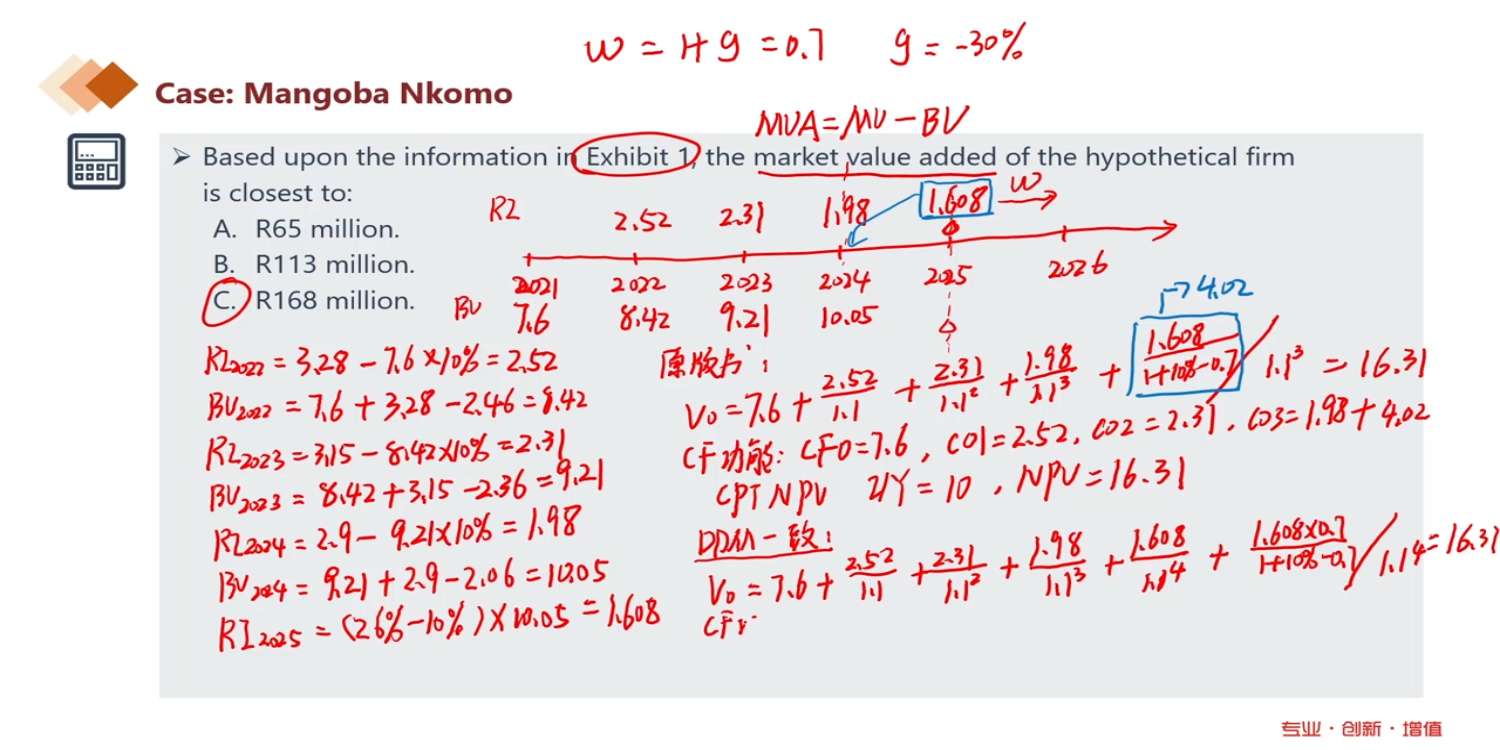 w = 1+g = 0.7 g = -30%
Case: Mangoba Nkomo
MVA = MV - BV
➢ Based upon the information in Exhibit 1, the market value added of the hypothetical firm
is closest to:
A. R65 million.
B. R113 million.
C. R168 million.
RI 2.52 2.31 1.98 1.608 w
2021 2022 2023 2024 2025 2026
BV 7.6 8.42 9.21 10.05
→4.02
RI2022 = 3.28 - 7.6×10% = 2.52
BV2022 = 7.6 + 3.28 - 2.46 = 8.42
RI2023 = 3.15 - 8.42×10% = 2.31
BV2023 = 8.42 + 3.15 - 2.36 = 9.21
RI2024 = 2.9 - 9.21×10% = 1.98
BV2024 = 9.21 + 2.9 - 2.06 = 10.05
RI2025 = (26% - 10%) × 10.05 = 1.608
原版书:
V0 = 7.6 + 2.52/1.1 + 2.31/1.1² + 1.98/1.1³ + 1.608/1+10%-0.7 / 1.1³ = 16.31
CF功能: CF0=7.6, C01=2.52, C02=2.31, C03=1.98+4.02
CPT NPV I/Y = 10, NPV = 16.31
DDM一致:
V0 = 7.6 + 2.52/1.1 + 2.31/1.1² + 1.98/1.1³ + 1.608/1.1⁴ + 1.608×0.7/1+10%-0.7 / 1.1⁴ = 16.31
CF
专业·创新·增值